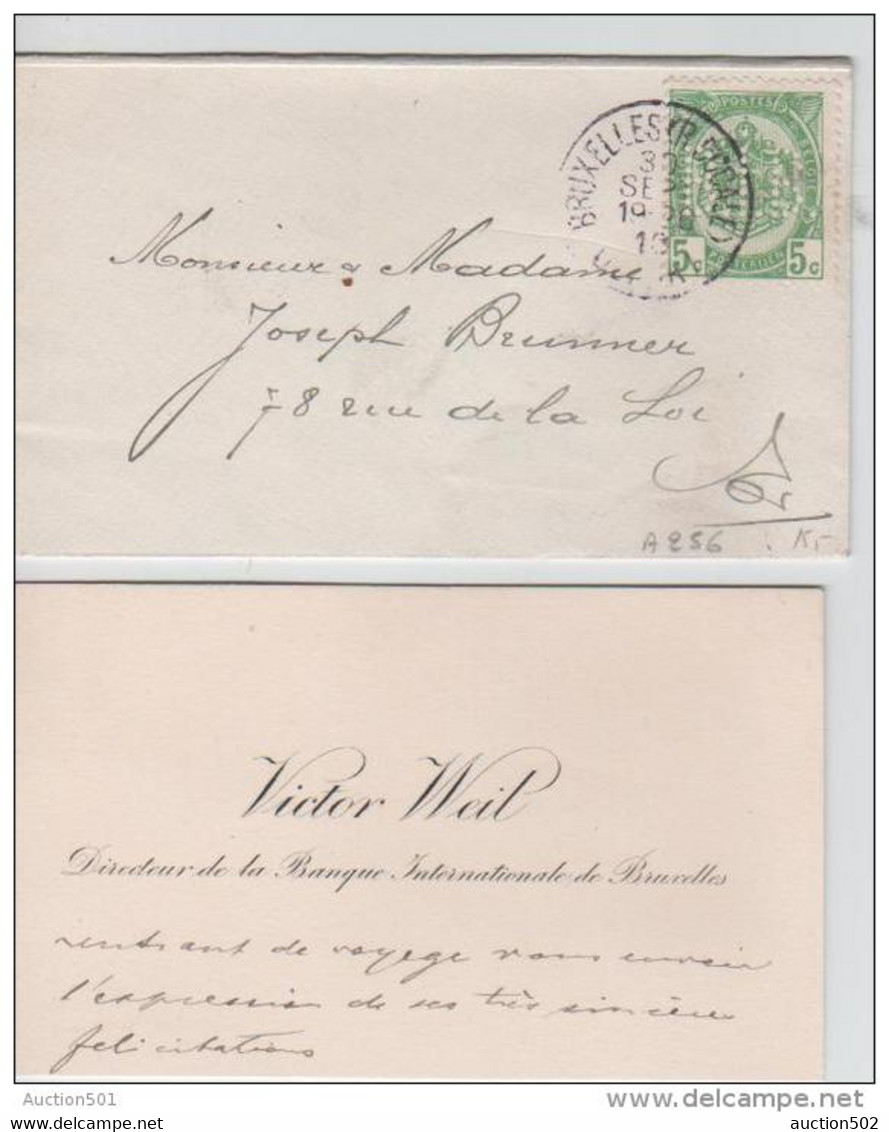 POSTES
BRUXELLES (R. DUCALE)
30
SE
19-20
5c 5c
POSTERIJEN
Monsieur & Madame
Joseph Brunner
78 rue de la Loi
A256
Victor Weil
Directeur de la Banque Internationale de Bruxelles
rentrant de voyage vous envoie
l'expression de ses très sincères
felicitations
Auction501
www.delcampe.net
auction502